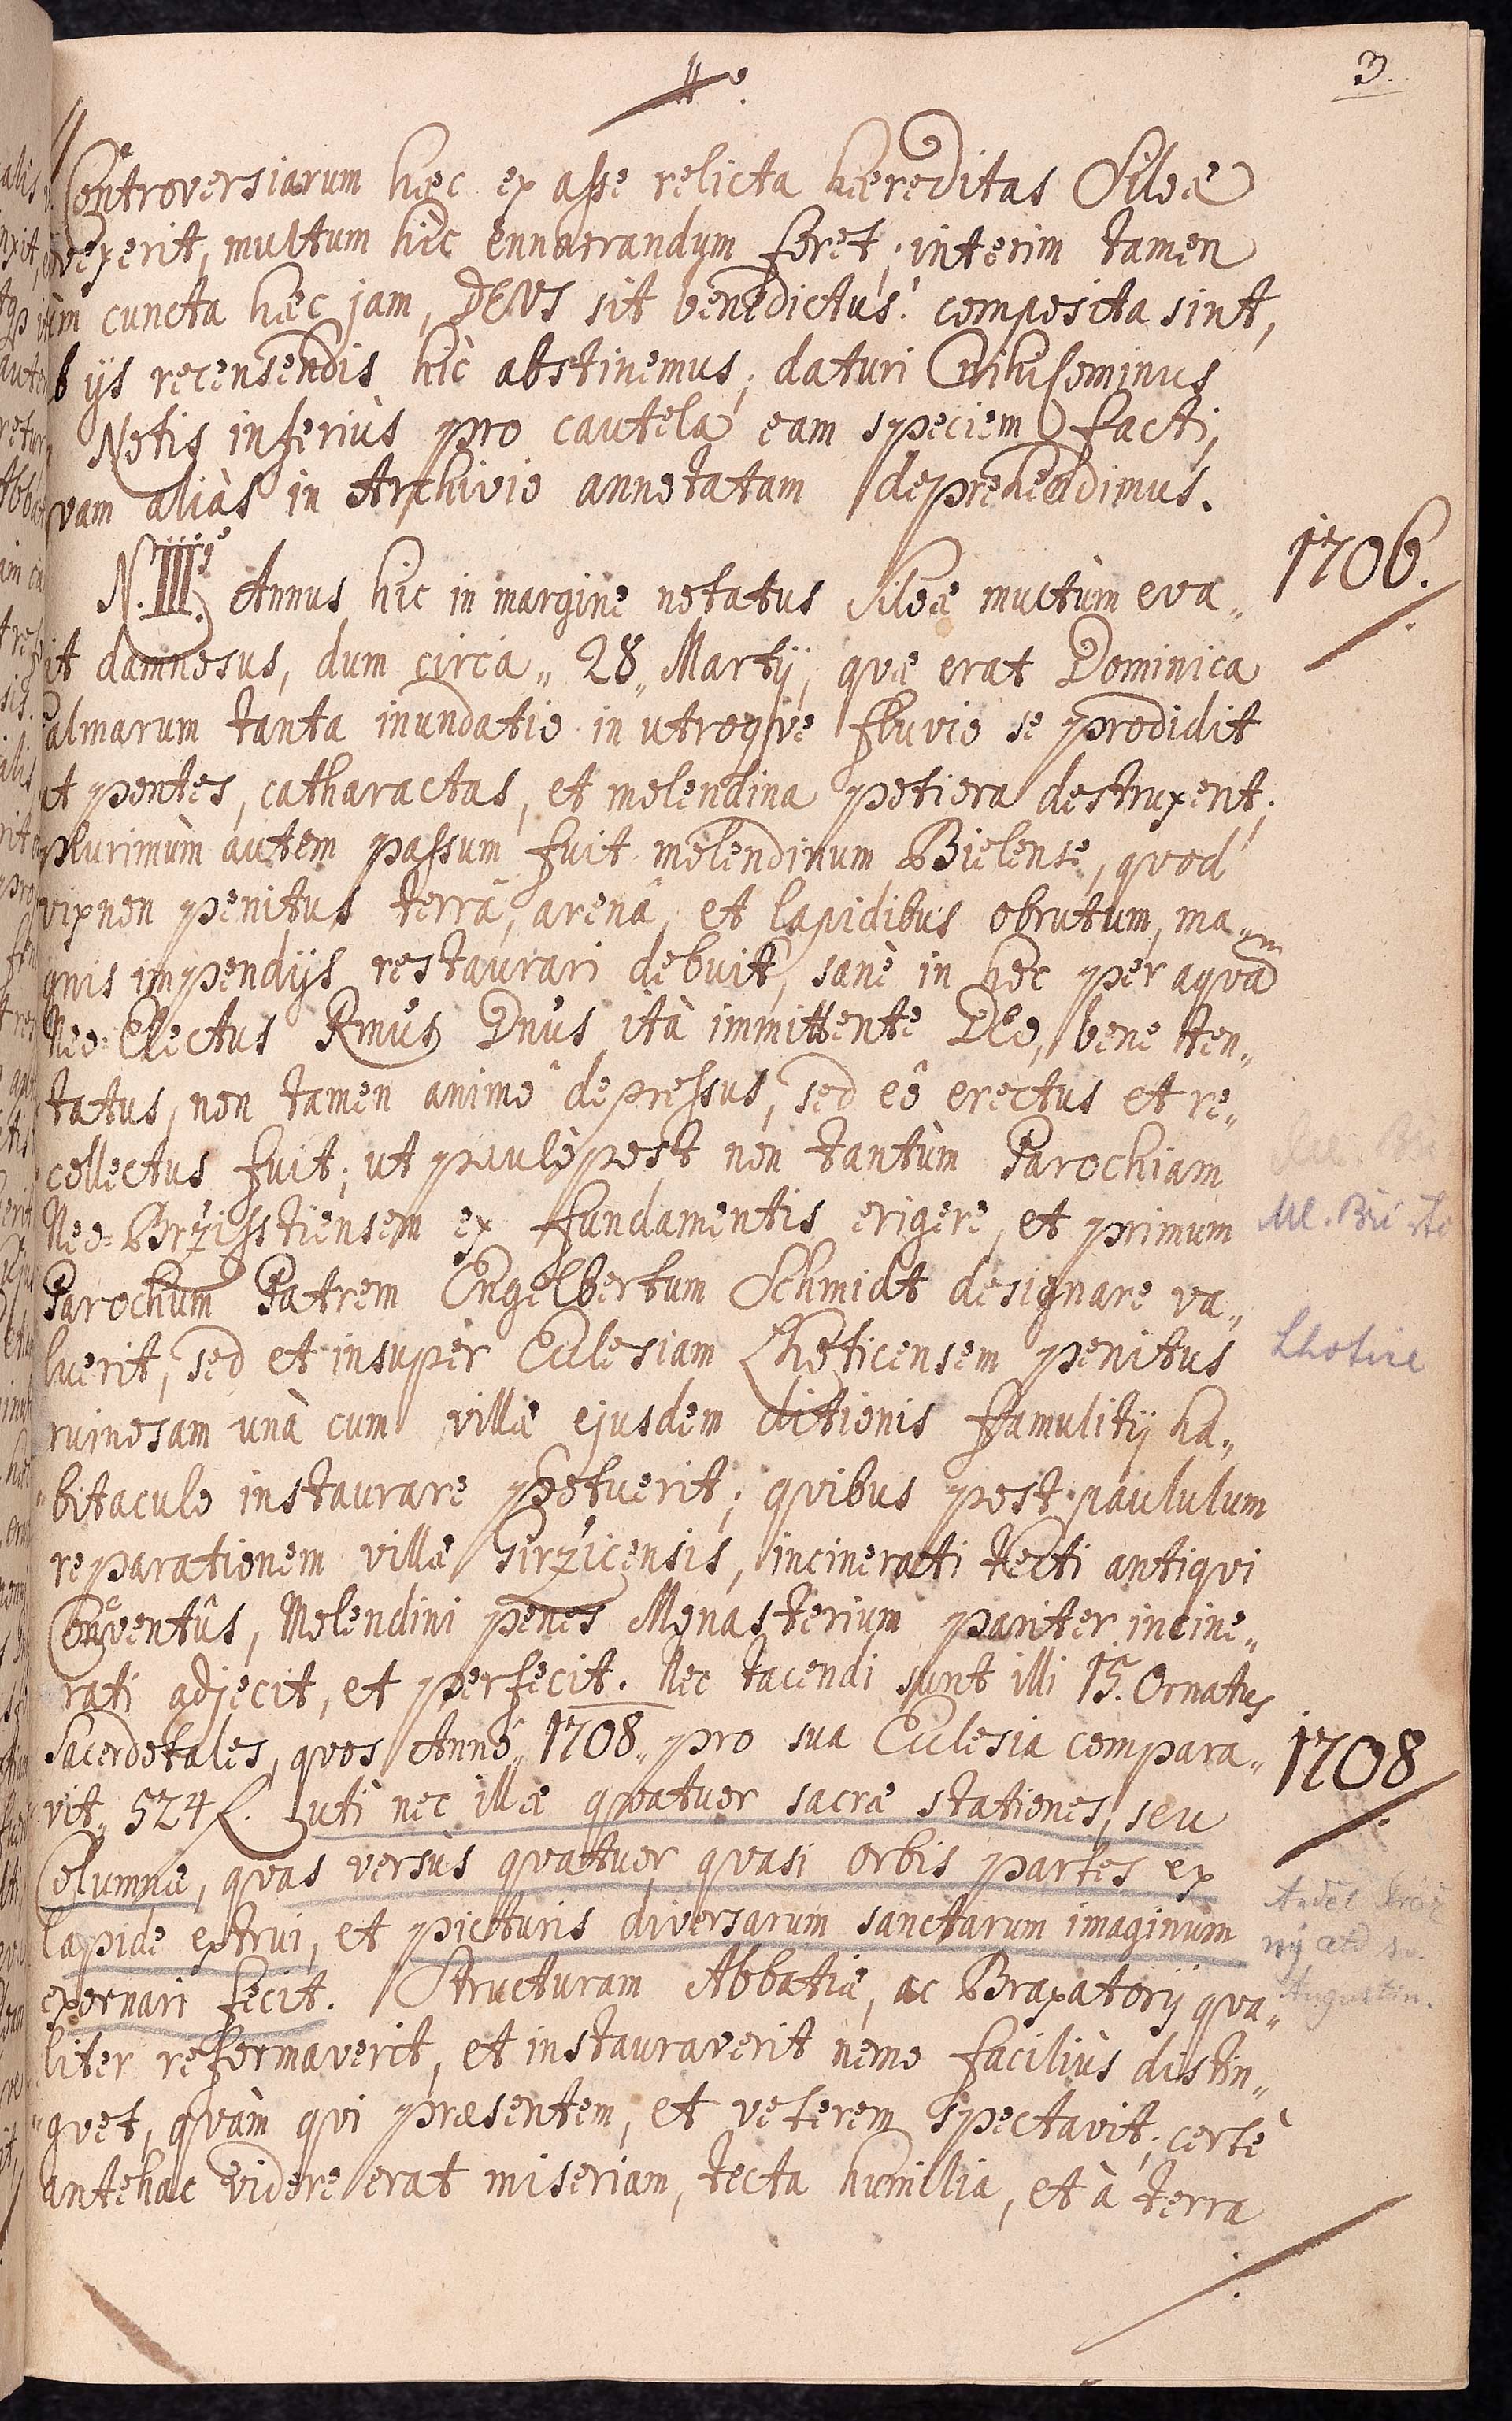 3.
Controversiarum hæc ex asse relicta hæreditas Siloæ
vexerit, multum hîc ennarrandum foret; interim tamen
cùm cuncta hæc jam, DEUS sit benedictus! composita sint,
ab ijs recensendis hîc abstinemus; daturi Nihilominus
Notis inferiùs pro cautelâ eam speciem facti,
quam aliàs in Archivio annotatam deprehendimus.
N. III. Annus hic in margine notatus Siloæ multùm eva„
1706.
it damnosus, dum circa „28„ Martij, quæ erat Dominica
Palmarum tanta inundatio in utroqve fluvio se prodidit
ut pontes, catharactas, et molendina potiora destruxerit;
plurimùm autem passum fuit molendinum Bielense, quod
vix non penitus terrâ, arenâ, et lapidibus obrutum, ma„
gnis impendijs restaurari debuit, sanè in hoc per aquam
Neo=Electus Rmus Dnus ità immittente DEo, bene ten„
tatus, non tamen animô depressus, sed eô erectus et re„
collectus fuit; ut paulò post non tantùm Parochiam
Neo=Brzisstiensem ex fundamentis erigere, et primum
Ml. Bříště
Parochum Patrem Engelbertum Schmidt designare va„
luerit, sed et insuper Ecclesiam Lhoticensem penitus
Lhotice
ruinosam unà cum villæ ejusdem ditionis famulitij ha„
„bitaculo instaurare potuerit; quibus post paululum
reparationem villæ Gerzicensis, incinerati tecti antiqui
Conventûs, Molendini penes Monasterium pariter incine„
rati adjecit, et perfecit. Nec tacendi sunt illi 15. Ornatus
Sacerdotales, quos Annô „1708„ pro sua Ecclesia compara„
1708
vit „524 f. uti nec illæ quatuor sacræ stationes, seu
Columnæ, quas versùs quatuor quasi orbis partes ex
lapide extrui, et picturis diversarum sanctarum imaginum
exornari fecit. Structuram Abbatiæ, ac Braxatorij qua„
Augustin.
liter reformaverit, et instauraverit nemo faciliùs distin„
„guet, quàm qui præsentem, et veterem spectavit; certè
antehac videre erat miseriam, tecta humilia, et à terra